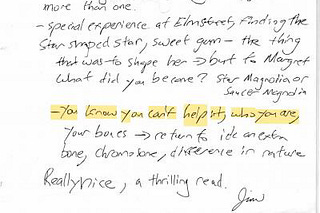 more than one.
- special experience at Elmstreet, finding the
Star shaped star, sweet gum - the thing
that was to shape her → but to Margret
what did you become? Star Magnolia or
Saucer Magnolia
- You know you can't help it, who you are,
your bones → return to idea extra
bone, chromosome, difference in nature
Really nice, a thrilling read.
Jim